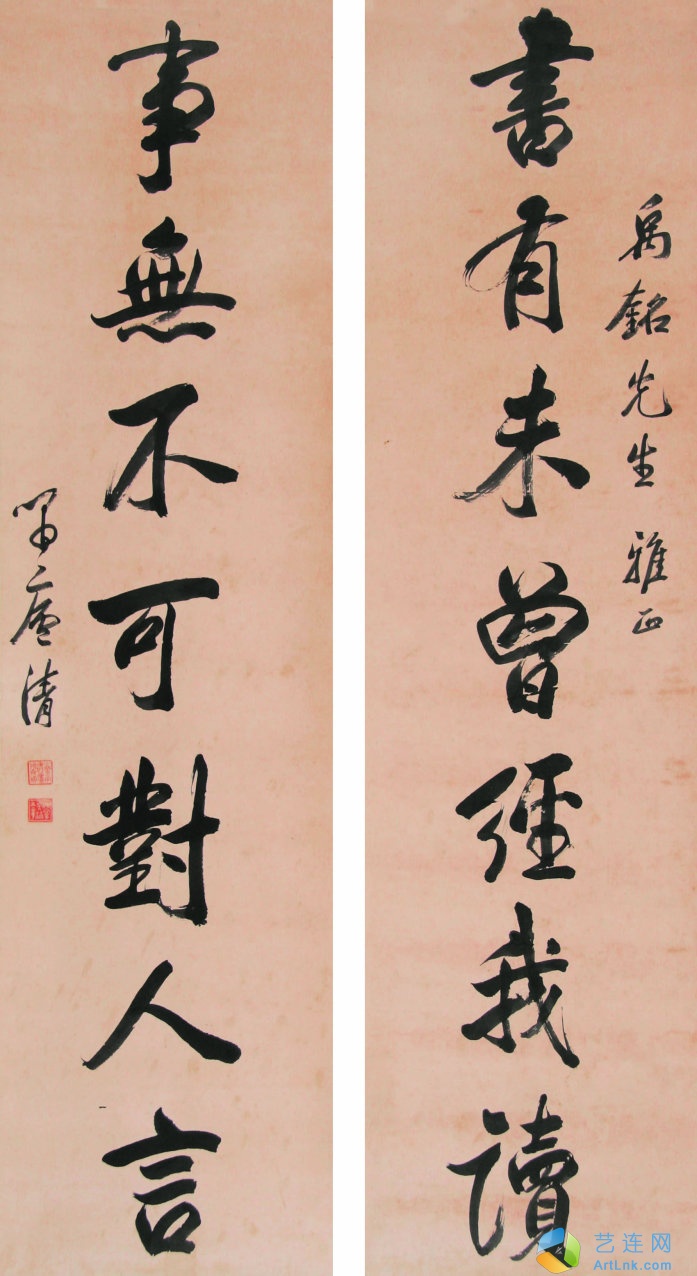 禹銘先生 雅正
書有未曾經我讀
事無不可對人言
清
艺连网
ArtLnk.com